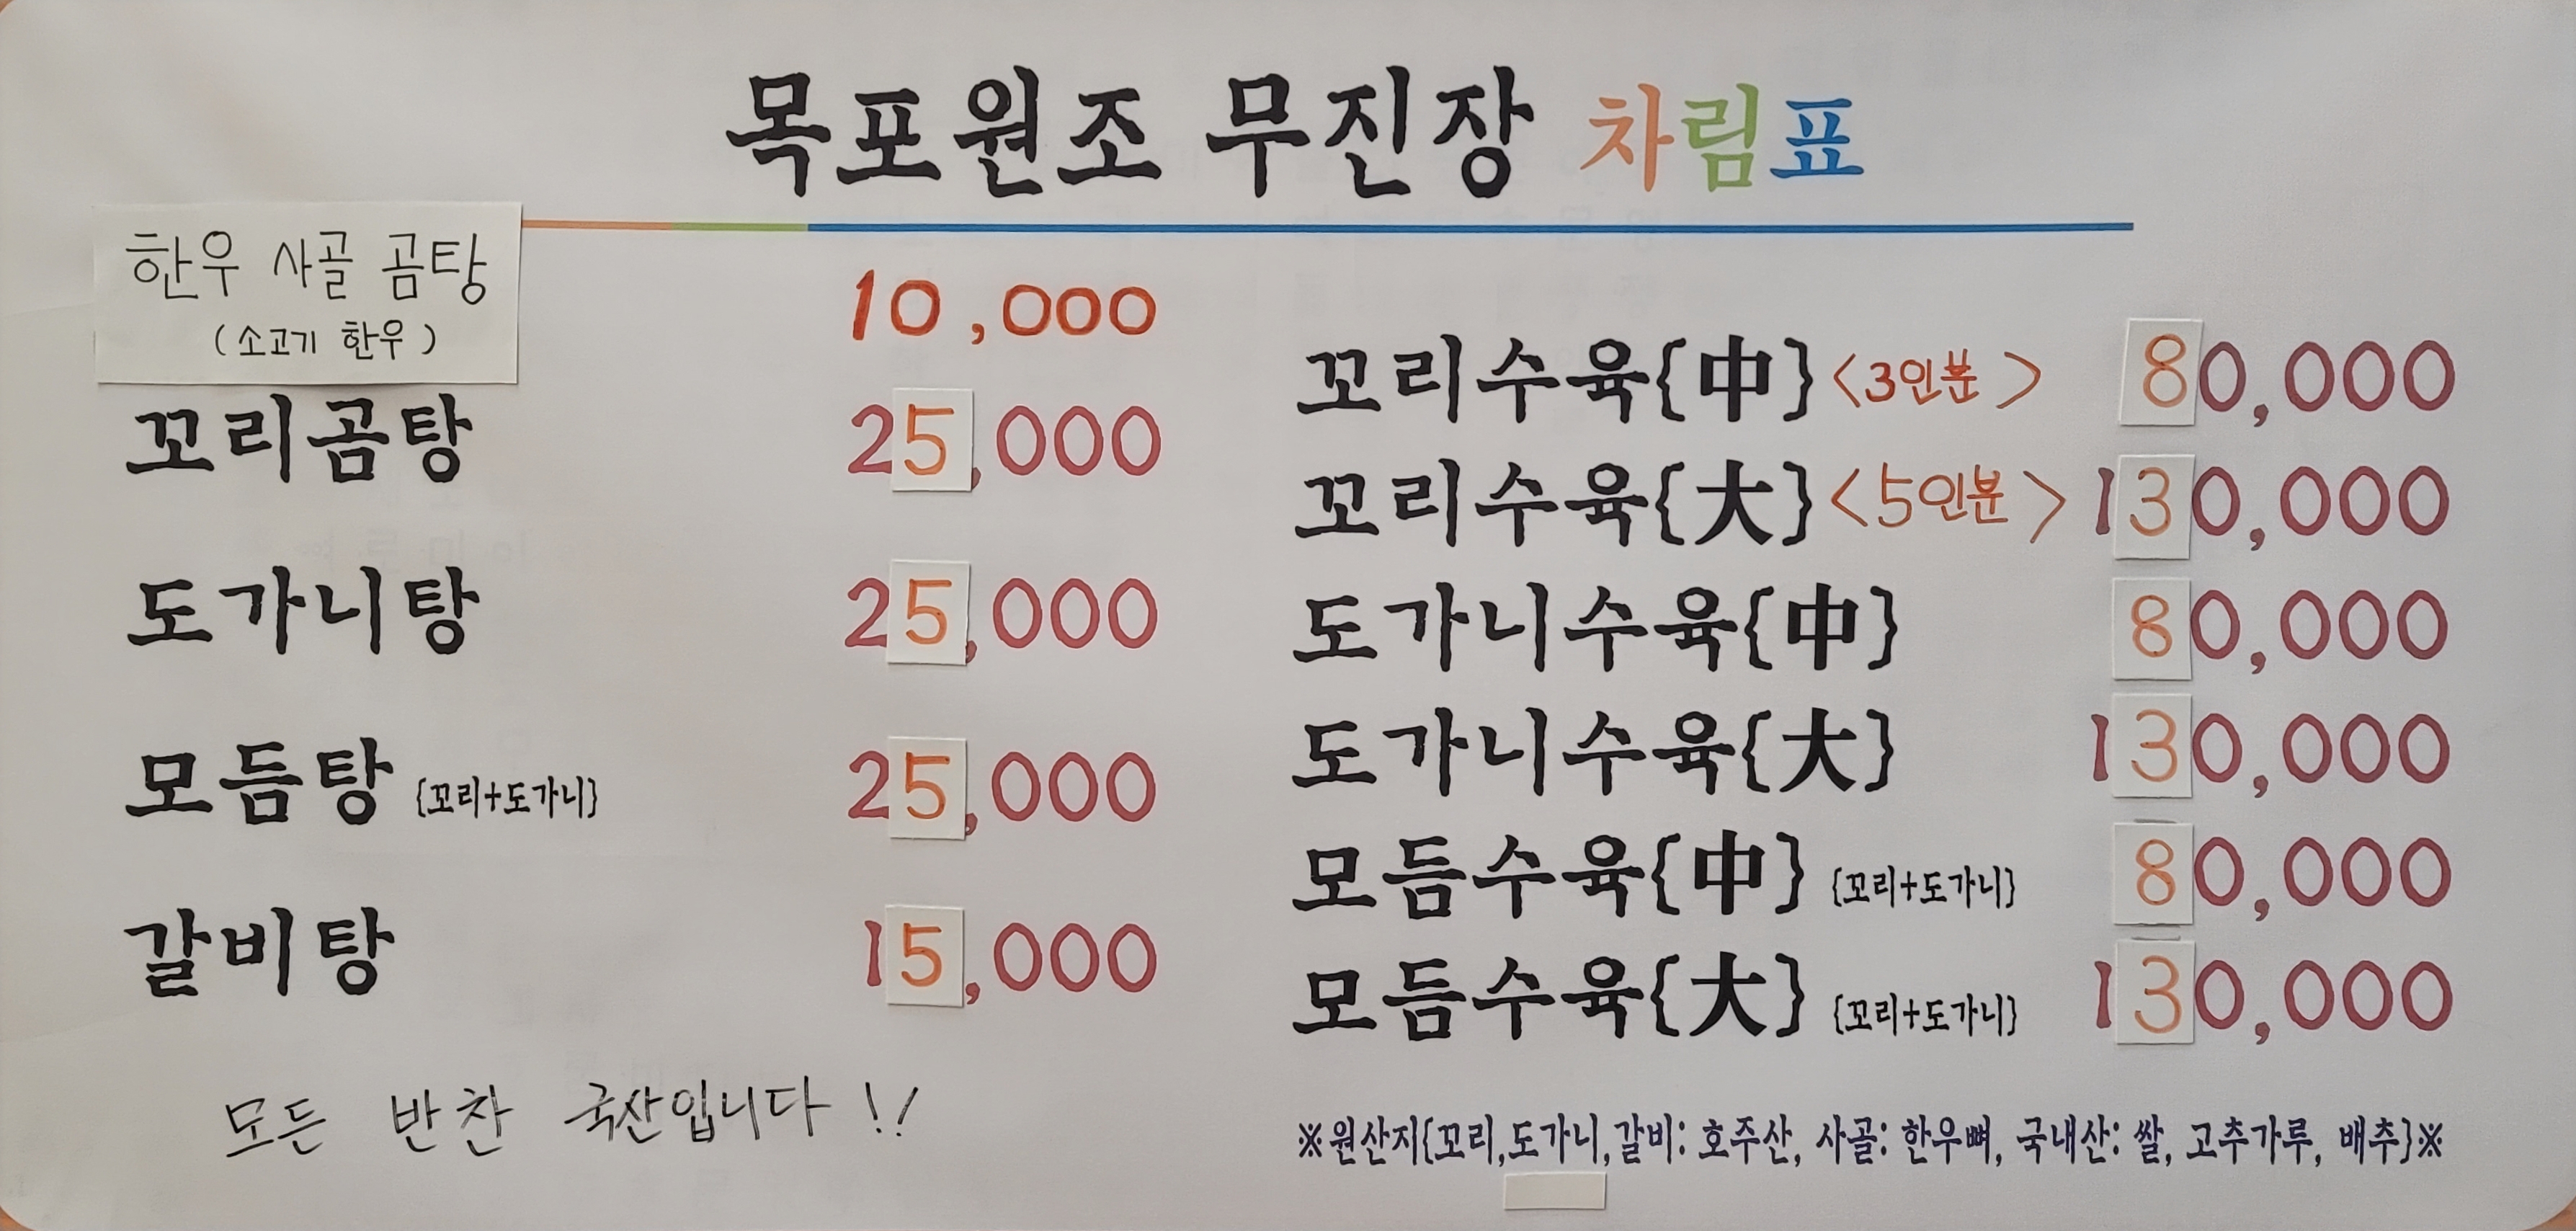 목포원조 무진장 차림표
한우 사골 곰탕 10,000
(소고기 한우)
꼬리곰탕 25,000
도가니탕 25,000
모듬탕 {꼬리+도가니} 25,000
갈비탕 15,000
모든 반찬 국산입니다!!
꼬리수육{中} <3인분> 80,000
꼬리수육{大} <5인분> 130,000
도가니수육{中} 80,000
도가니수육{大} 130,000
모듬수육{中} {꼬리+도가니} 80,000
모듬수육{大} {꼬리+도가니} 130,000
※원산지{꼬리,도가니,갈비: 호주산, 사골: 한우뼈, 국내산: 쌀, 고추가루, 배추}※